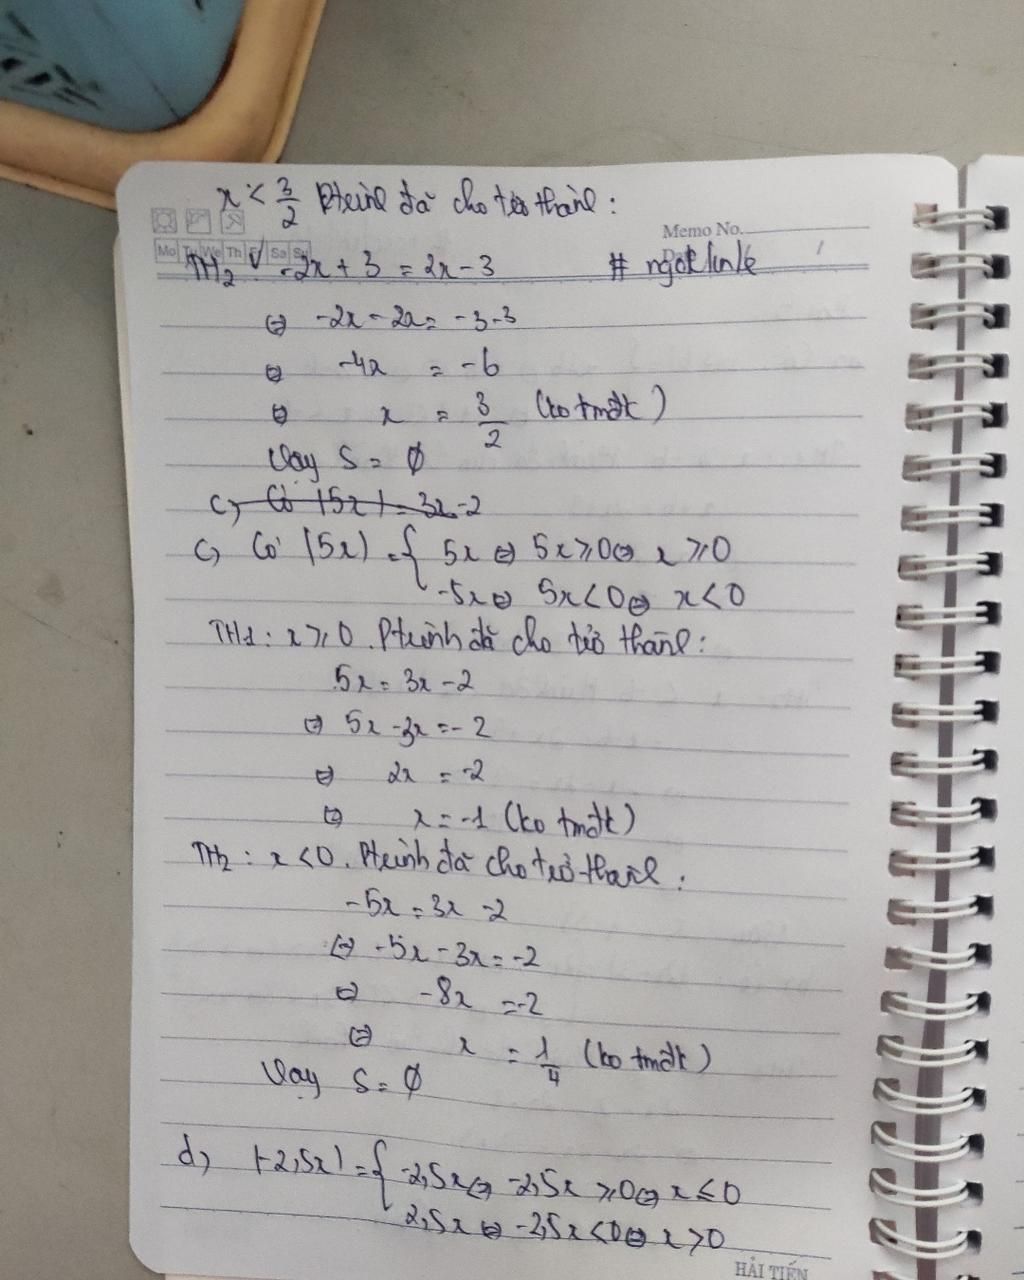 x < 3/2 Ptrình đã cho trở thành:
Memo No.
Mo Tu We Th F Sa Su
TH2 : -2x + 3 = 2x - 3 # ngoclinh
⇔ -2x - 2x = -3-3
⇔ -4x = -6
⇔ x = 3/2 (ko tmđk)
Vay S = ∅
c, Có |5x| = 3x - 2
c, Có |5x| = { 5x ⇔ 5x ⩾ 0 ⇔ x ⩾ 0
-5x ⇔ 5x < 0 ⇔ x < 0
TH1: x ⩾ 0. Ptrình đã cho trở thành:
5x = 3x - 2
⇔ 5x - 3x = -2
⇔ 2x = -2
⇔ x = -1 (ko tmđk)
TH2 : x < 0. Ptrình đã cho trở thành:
-5x = 3x - 2
⇔ -5x - 3x = -2
⇔ -8x = -2
⇔ x = 1/4 (ko tmđk)
Vay S = ∅
d, |-2,5x| = { -2,5x ⇔ -2,5x ⩾ 0 ⇔ x ≤ 0
2,5x ⇔ -2,5x < 0 ⇔ x > 0
HẢI TIẾN